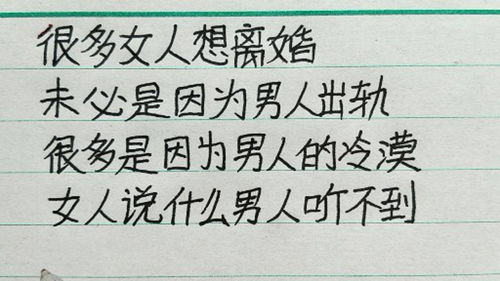 很多女人想离婚
未必是因为男人出轨
很多是因为男人的冷漠
女人说什么男人听不到